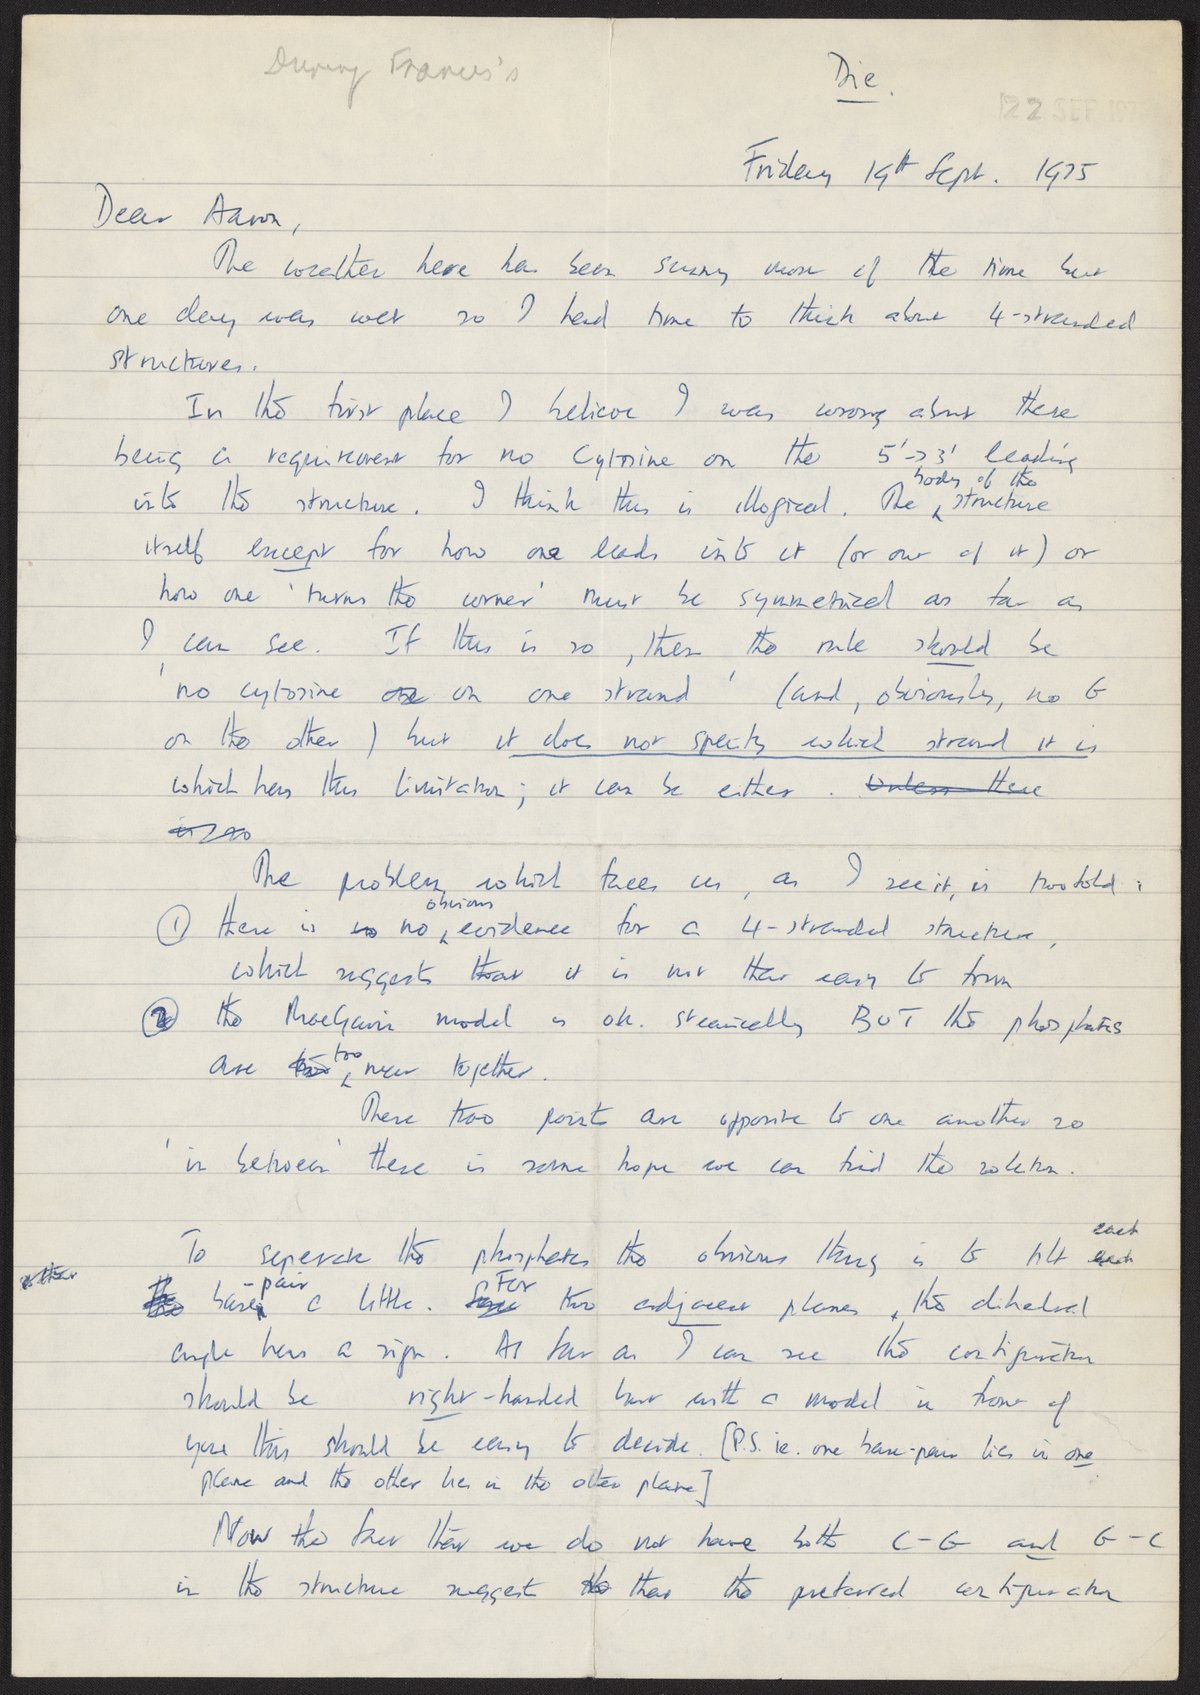 During Francis's
Die.
22 SEP 1975
Friday 19th Sept. 1975
Dear Aaron,
The weather here has been sunny most of the time but
one day was wet so I had time to think about 4-stranded
structures.
In the first place I believe I was wrong about there
being a requirement for no Cytosine on the 5'->3' leading
into the structure. I think this is illogical. The body of the structure
itself except for how one leads into it (or out of it) or
how one 'turns the corner' must be symmetrized as far as
I can see. If this is so, then the rule should be
'no cytosine on one strand' (and, obviously, no G
on the other) but it does not specify which strand it is
which has this limitation; it can be either. Unless there
is so
The problem which faces us, as I see it, is twofold:
① there is no obvious evidence for a 4-stranded structure,
which suggests that it is not that easy to form
② the MacGavin model is ok. sterically BUT the phosphates
are too near together.
These two points are opposite to one another so
'in between' there is some hope we can find the solution.
To seperate the phosphates the obvious thing is to tilt each
base-pair a little. For two adjacent planes, the dihedral
angle has a sign. As far as I can see the configuration
should be right-handed but with a model in front of
you this should be easy to decide. [P.S. ie. one base-pair lies in one
plane and the other lies in the other plane]
Now the fact that we do not have both C-G and G-C
in the structure suggest that the preferred configuration